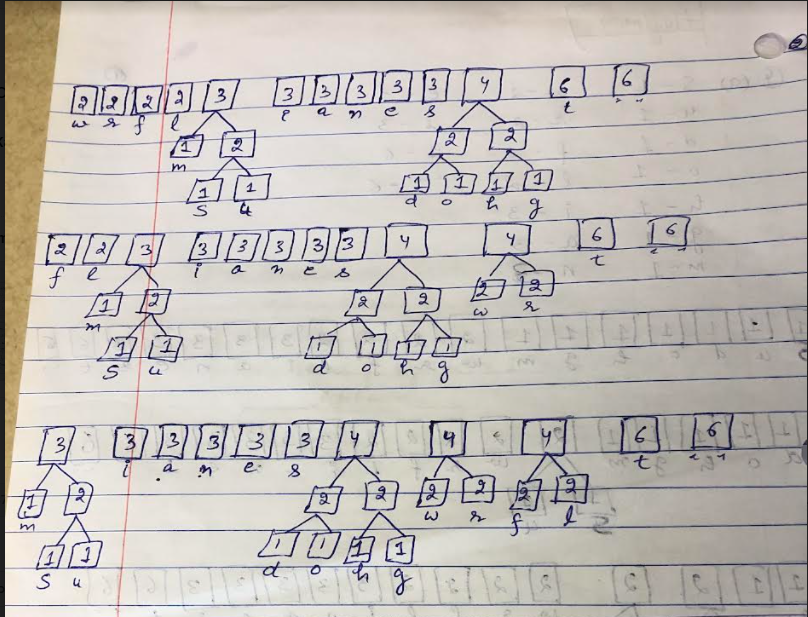 2 2 2 2 3 3 3 3 3 3 4 6 6
w r f l i a n e s t " "
1 2 2 2
m
1 1 1 1 1 1
S u d o h g
2 2 3 3 3 3 3 3 4 4 6 6
f l i a n e s t " "
1 2 2 2 2 2
m w r
1 1 1 1 1 1
S u d o h g
3 3 3 3 3 3 4 4 4 6 6
i a n e s t " "
1 2 2 2 2 2 2 2
m w r f l
1 1 1 1 1 1
S u d o h g